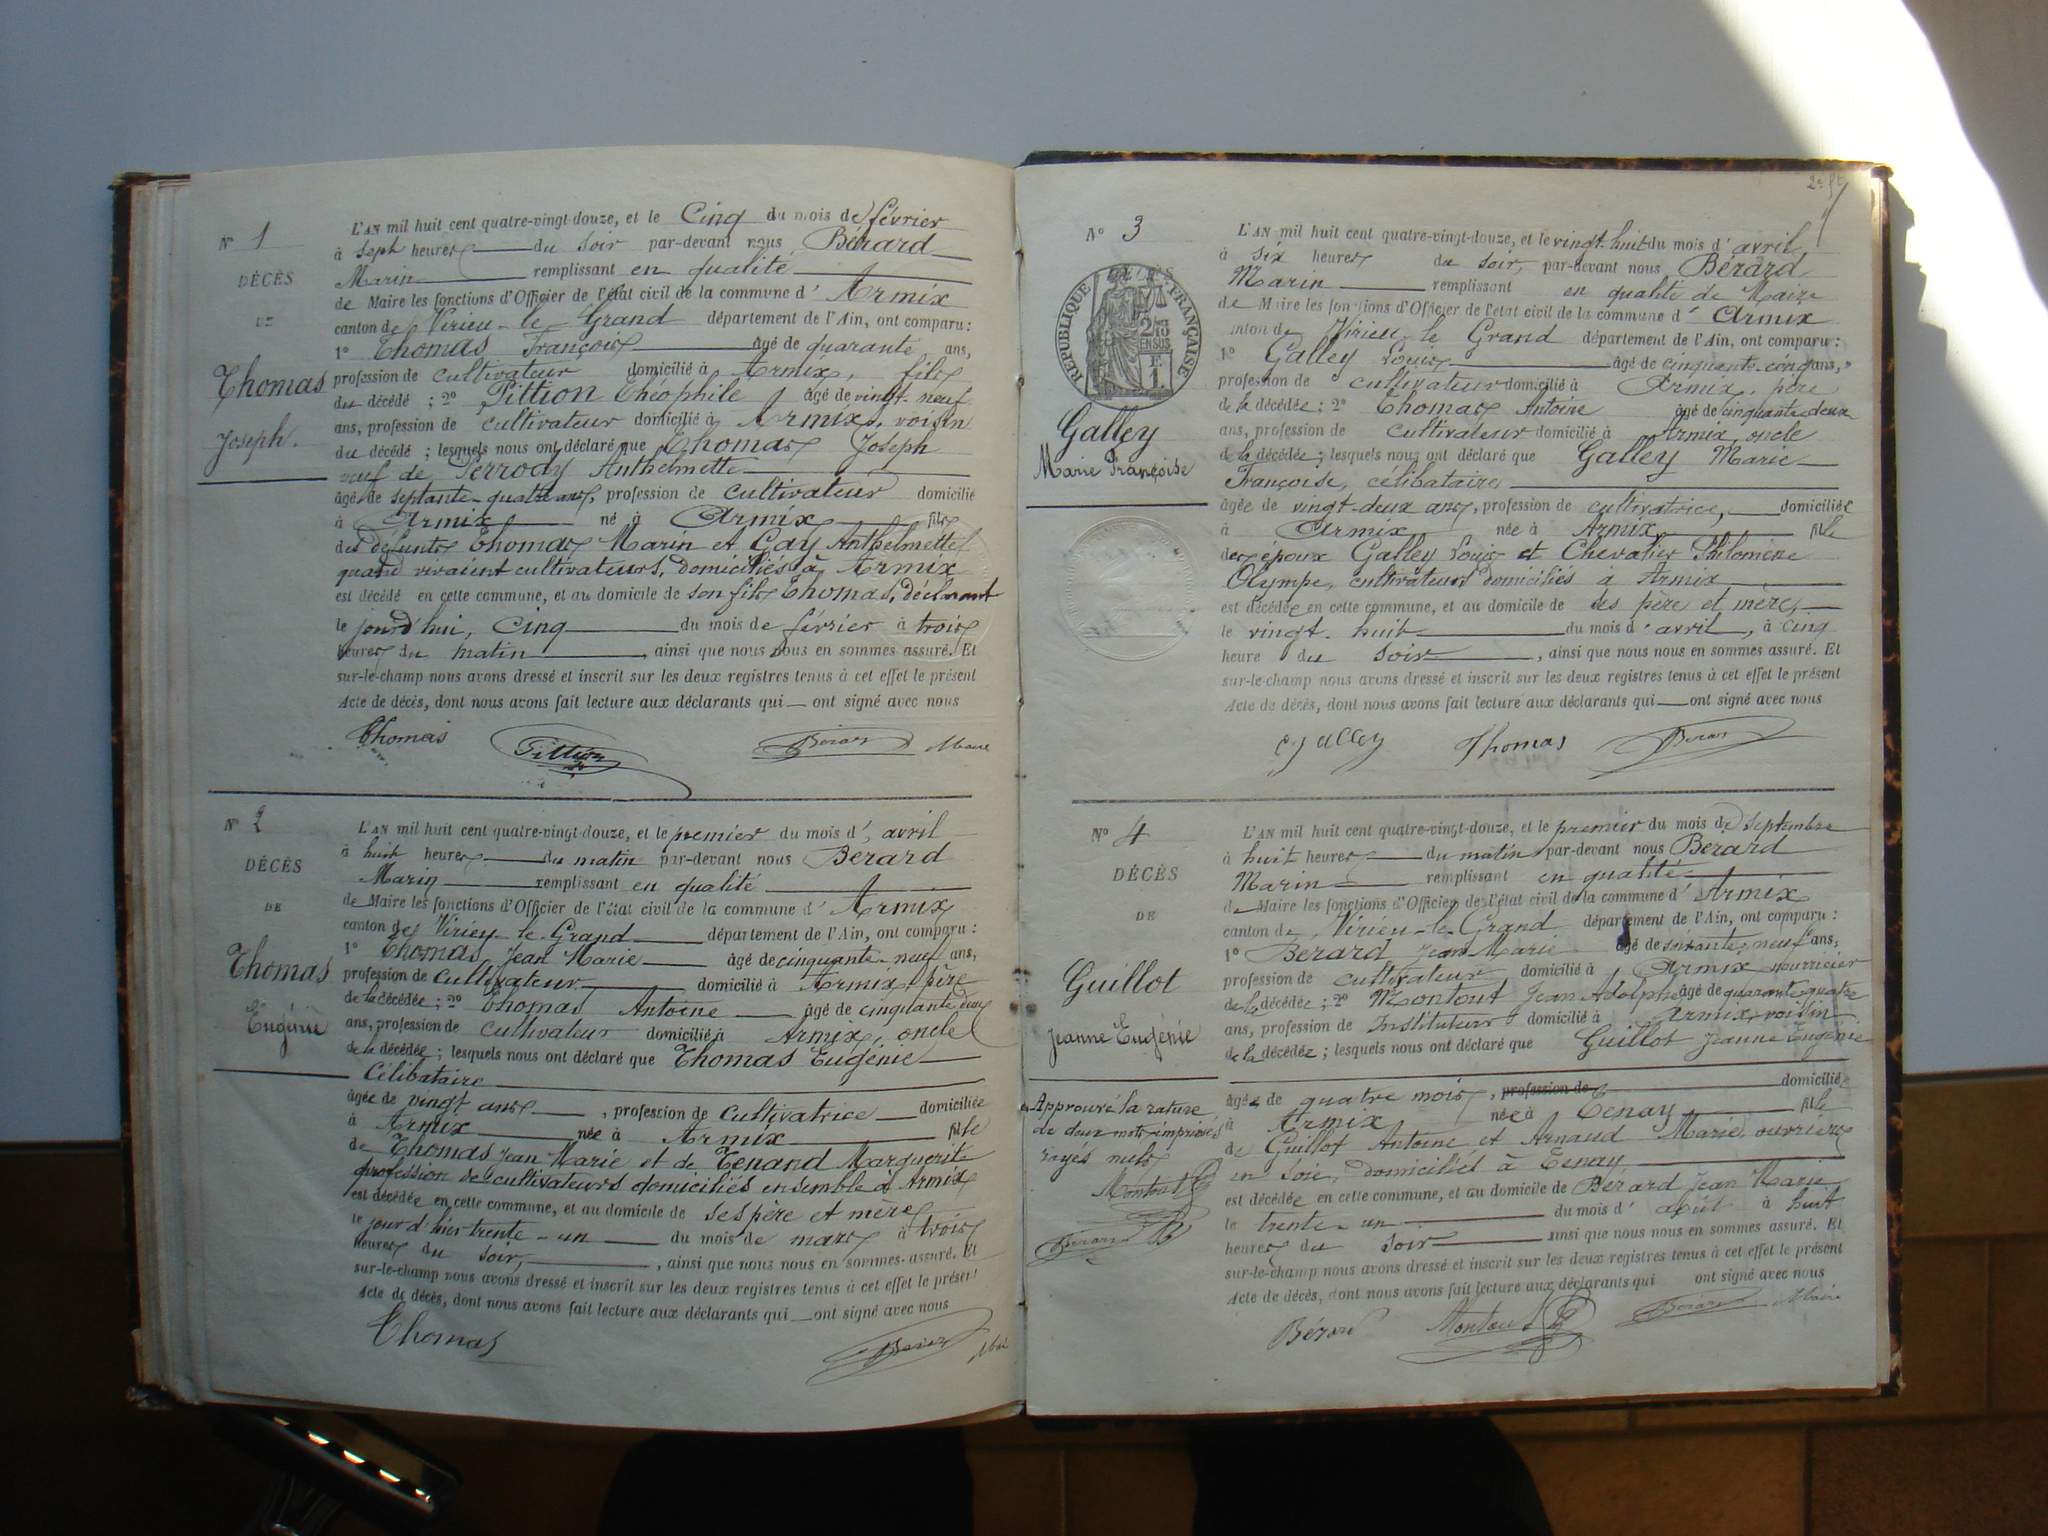 N° 1
DÉCÈS
DE
Thomas
Joseph.
L'AN mil huit cent quatre-vingt-douze, et le Cinq du mois de février
à sept heures du soir par-devant nous Bérard
Marin remplissant en qualité
de Maire les fonctions d'Officier de l'état civil de la commune d' Armix
canton de Virieu-le-Grand département de l'Ain, ont comparu :
1° Thomas François âgé de quarante ans,
profession de cultivateur domicilié à Armix, fils
du décédé ; 2° Pittion Théophile âgé de vingt-neuf
ans, profession de cultivateur domicilié à Armix, voisin
du décédé ; lesquels nous ont déclaré que Thomas Joseph
veuf de Perrody Anthelmette
âgé de septante-quatre ans, profession de cultivateur domicilié
à Armix né à Armix fils
des défunts Thomas Marin et Gay Anthelmette
quand vivaient cultivateurs, domiciliés à Armix
est décédé en cette commune, et au domicile de son fils Thomas, déclarant
le jourd'hui, Cinq du mois de février à trois
heures du matin, ainsi que nous nous en sommes assuré. Et
sur-le-champ nous avons dressé et inscrit sur les deux registres tenus à cet effet le présent
Acte de décès, dont nous avons fait lecture aux déclarants qui ont signé avec nous
Thomas Pittion Bérard Maire
N° 2
DÉCÈS
DE
Thomas
Eugénie
L'AN mil huit cent quatre-vingt-douze, et le premier du mois d' avril
à huit heures du matin par-devant nous Bérard
Marin remplissant en qualité
de Maire les fonctions d'Officier de l'état civil de la commune d' Armix
canton de Virieu-le-Grand département de l'Ain, ont comparu :
1° Thomas Jean Marie âgé de cinquante-neuf ans,
profession de cultivateur domicilié à Armix, père
de la décédée ; 2° Thomas Antoine âgé de cinquante deux
ans, profession de cultivateur domicilié à Armix, oncle
de la décédée ; lesquels nous ont déclaré que Thomas Eugénie
Célibataire
âgée de vingt ans, profession de cultivatrice domiciliée
à Armix née à Armix fille
de Thomas Jean Marie et de Tenand Marguerite
profession de cultivateurs domiciliés ensemble à Armix
est décédée en cette commune, et au domicile de ses père et mère
le jour d'hier trente-un du mois de mars à trois
heures du soir, ainsi que nous nous en sommes assuré. Et
sur-le-champ nous avons dressé et inscrit sur les deux registres tenus à cet effet le présent
Acte de décès, dont nous avons fait lecture aux déclarants qui ont signé avec nous
Thomas Bérard Maire
N° 3
RÉPUBLIQUE FRANÇAISE
Galley
Marie Françoise
L'AN mil huit cent quatre-vingt-douze, et le vingt-huit du mois d' avril
à six heures du soir, par-devant nous Bérard
Marin remplissant en qualité de Maire
de Maire les fonctions d'Officier de l'état civil de la commune d' Armix
canton de Virieu-le-Grand département de l'Ain, ont comparu :
1° Galley Louis âgé de cinquante-cinq ans,
profession de cultivateur domicilié à Armix, père
de la décédée ; 2° Thomas Antoine âgé de cinquante-deux
ans, profession de cultivateur domicilié à Armix, oncle
de la décédée ; lesquels nous ont déclaré que Galley Marie
Françoise, célibataire
âgée de vingt-deux ans, profession de cultivatrice, domiciliée
à Armix née à Armix fille
des époux Galley Louis et Chevalier Philomène
Olympe, cultivateurs domiciliés à Armix
est décédée en cette commune, et au domicile de ses père et mère,
le vingt-huit du mois d' avril, à cinq
heure du soir, ainsi que nous nous en sommes assuré. Et
sur-le-champ nous avons dressé et inscrit sur les deux registres tenus à cet effet le présent
Acte de décès, dont nous avons fait lecture aux déclarants qui ont signé avec nous
Galley Thomas Bérard
N° 4
DÉCÈS
DE
Guillot
Jeanne Eugénie
Approuvé la rature
de deux mots imprimés
rayés nuls
Montout
Bérard
L'AN mil huit cent quatre-vingt-douze, et le premier du mois de septembre
à huit heures du matin par-devant nous Bérard
Marin remplissant en qualité
de Maire les fonctions d'Officier de l'état civil de la commune d' Armix
canton de Virieu-le-Grand département de l'Ain, ont comparu :
1° Bérard Jean Marie âgé de soixante-neuf ans,
profession de cultivateur domicilié à Armix nourricier
de la décédée ; 2° Montout Jean Adolphe âgé de quarante-quatre
ans, profession de Instituteur domicilié à Armix, voisin
de la décédée ; lesquels nous ont déclaré que Guillot Jeanne Eugénie
âgée de quatre mois, profession de domiciliée
à Armix née à Tenay fille
de Guillot Antoine et Arnaud Marie, ouvriers
en soie, domiciliés à Tenay
est décédée en cette commune, et au domicile de Bérard Jean Marie
le trente-un du mois d' août à huit
heures du soir ainsi que nous nous en sommes assuré. Et
sur-le-champ nous avons dressé et inscrit sur les deux registres tenus à cet effet le présent
Acte de décès, dont nous avons fait lecture aux déclarants qui ont signé avec nous
Bérard Montout Bérard Maire